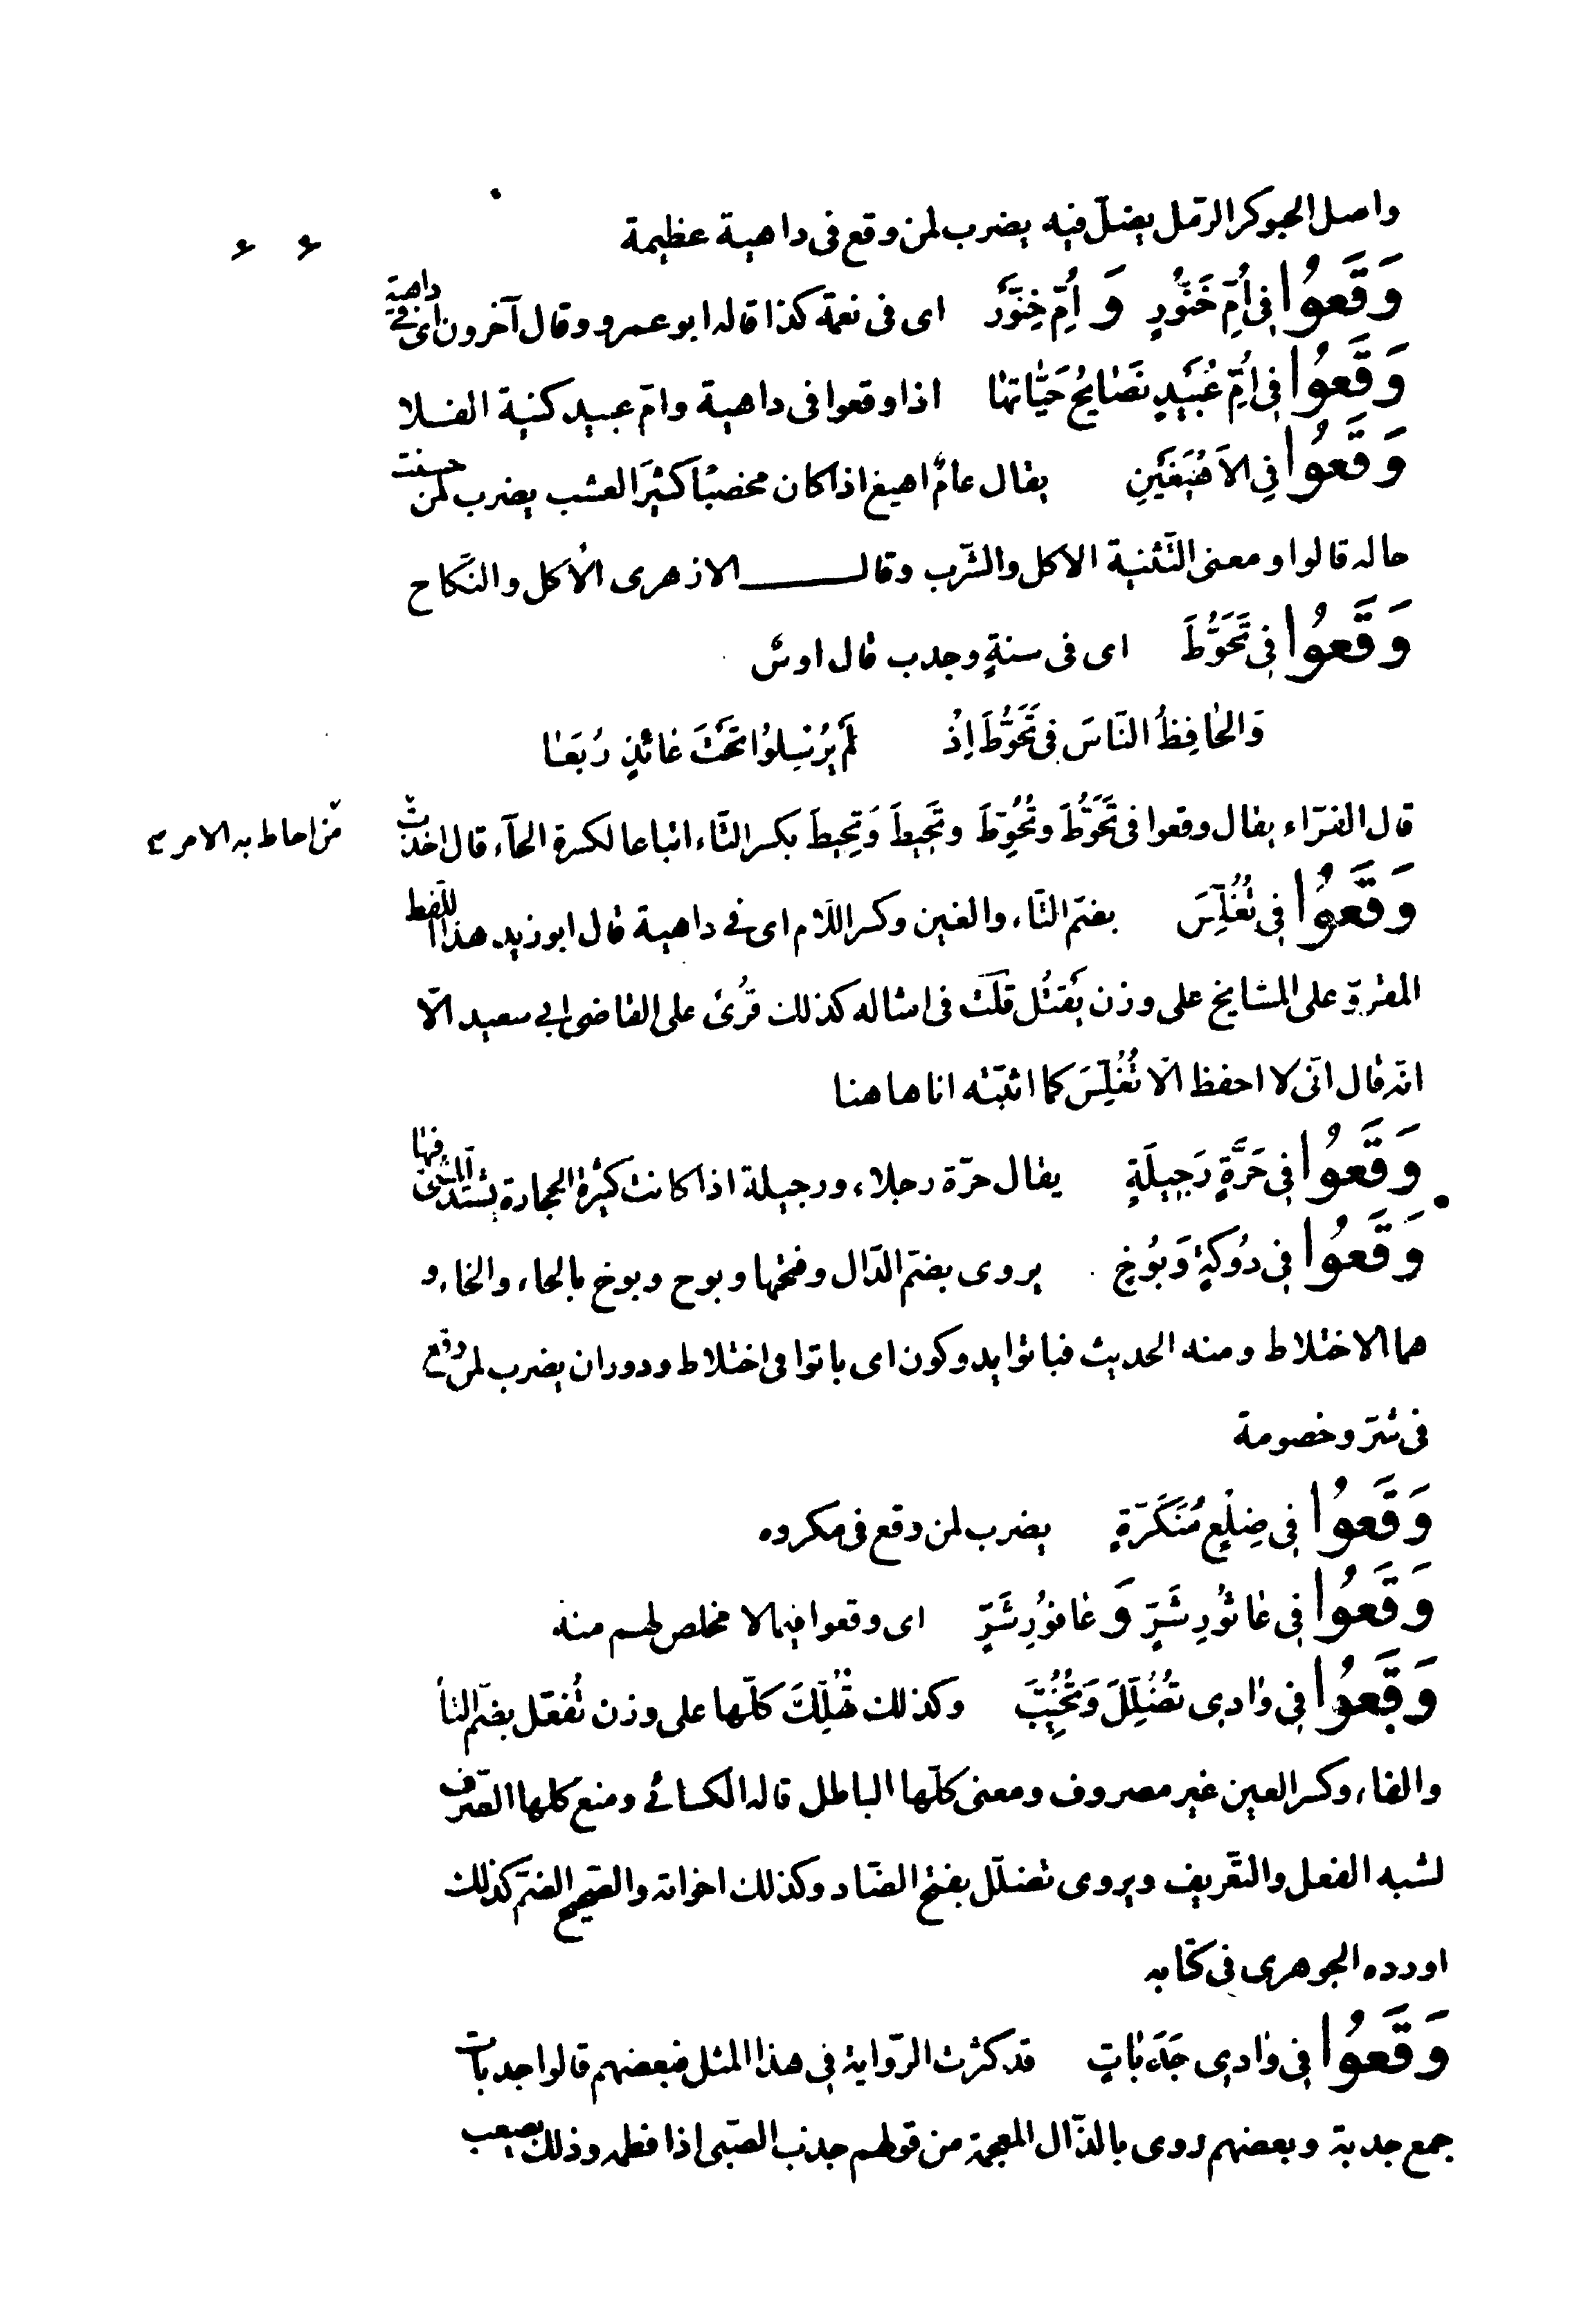 واصل الحبوكر الرّمل يضلّ فيه يضرب لمن وقع فى داهية عظيمة
وَقَعُوا فِى أُمِّ خَنُّورٍ وَ أُمِّ خِنَّوْرٍ اى فى نعمة كذا قاله ابو عمرو وقال آخرون اى فى داهية
وَقَعُوا فِى أُمِّ عُبَيْدٍ تَصَايَحُ حَيَّاتُهَا اذا وقعوا فى داهية وامّ عبيد كنية الفلا
وَقَعُوا فِى الأَهْيَغَيْنِ يقال عامٌ اهيغ اذا كان مخصبًا كثيرَ العشب يضرب لمن حسنت
حاله قالوا ومعنى التّثنية الاكل والشّرب وقال الازهرى الاكل والنّكاح
وَقَعُوا فِى تَحُوُّطَ اى فى سنةٍ وجدب قال اوسٌ
وَالحَافِظُ النَّاسَ فِى تَحُوُّطَ اِذْ لَمْ يُرْسِلُوا تَحْتَ عَائِذٍ رُبَعَا
قال الفرّاء يقال وقعوا فى تَحُوُّطَ وتُحُوِّطَ وتَحِيطَ وَتِحِيطَ بكسر التّاء اتباعا لكسرة الحآء قال اخذت
من احاط به الامر
وَقَعُوا فِى تُغُلِّسَ بضمّ التّاء والغين وكسر اللّام اى فى داهية قال ابو زيد هذا اللّفظ
المقروّ على المشايخ على وزن يَقتُل قلت فى امثاله كذلك قُرئ على القاضى ابى سعيد الّا
انّه قال انّى لا احفظ الّا تُغُلِّسَ كما اثبتّه انا هاهنا
وَقَعُوا فِى حَرَّةٍ رَجِيلَةٍ يقال حرّة رجلاء ورجيلة اذا كانت كثيرة الحجارة يشتدّ المشى فيها
وَقَعُوا فِى دُوكَةٍ وَبُوخٍ يروى بضمّ الدّال وفتحها وبوح وبوخ بالحاء والخاء و
هما الاختلاط ومنه الحديث فباتوا يدوكون اى باتوا فى اختلاط ودوران يضرب لمن وقع
فى شرّ وخصومة
وَقَعُوا فِى ضِلَعٍ مُنَكَّرَةٍ يضرب لمن وقع فى مكروه
وَقَعُوا فِى عَاثُورِ شَرٍّ وَ عَافُورِ شَرٍّ اى وقعوا فيما لا مخلص لهم منه
وَقَعُوا فِى وَادِى تُضُلِّلَ وَتُخُيِّبَ وكذلك تُهُلِّكَ كلّها على وزن تُفُعِّل بضمّ التاء
والفاء وكسر العين غير مصروف ومعنى كلّها الباطل قاله الكسائى ومنع كلها الصّرف
لشبه الفعل والتّعريف ويروى تضلّل بفتح الضّاد وكذلك اخواته والصّحيح الضمّ كذلك
اورده الجوهرى فى كتابه
وَقَعُوا فِى وَادِى جَدَبَاتٍ قد كثرت الرّواية فى هذا المثل فبعضهم قالوا جدبات
جمع جدبة وبعضهم روى بالذّال المعجمة من قولهم جذب الصّبى اذا فطمه وذلك يصعب